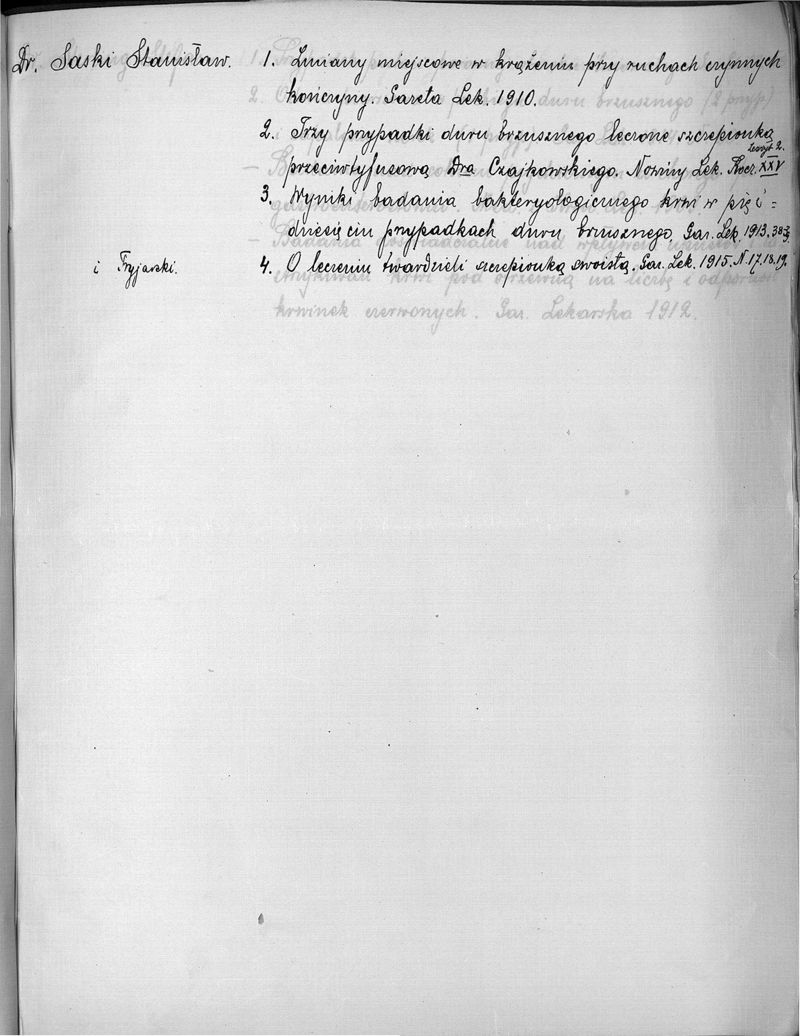 Dr. Saski Stanisław. 1. Zmiany miejscowe w krążeniu przy ruchach czynnych
kończyny. Gazeta Lek. 1910.
2. Trzy przypadki duru brzusznego leczone szczepionką
przeciwtyfusową Dra Czajkowskiego. Nowiny Lek. Rocz. XXV zeszyt 2.
3. Wyniki badania bakteryologicznego krwi w pięć-
dziesięciu przypadkach duru brzusznego. Gaz. Lek. 1913.
i Fryjarski. 4. O leczeniu twardzieli szczepionką swoistą. Gaz. Lek. 1915. N. 17. 18. 19.
krwinek czerwonych. Gaz. Lekarska 1912.